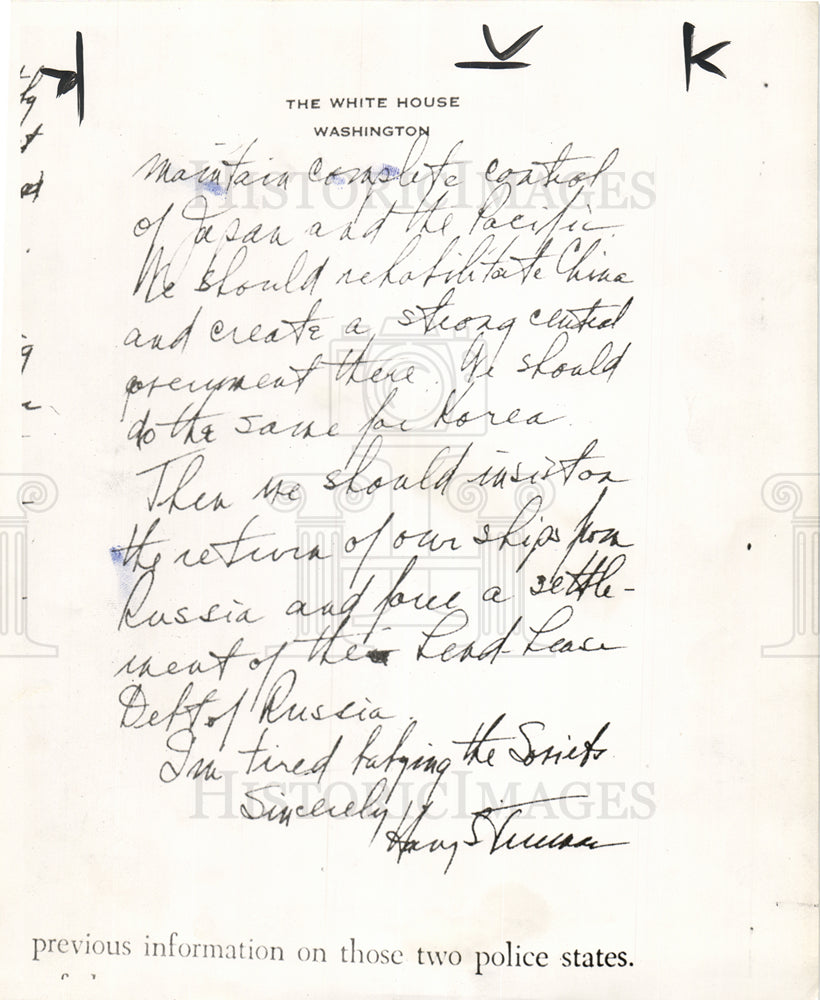 THE WHITE HOUSE
WASHINGTON
maintain complete control
of Japan and the Pacific.
We should rehabilitate China
and create a strong central
government there. We should
do the same for Korea.
Then we should insist on
the return of our ships from
Russia and force a settle-
ment of the Lend-Lease
Debt of Russia.
I'm tired babying the Soviets.
Sincerely,
Harry S Truman
previous information on those two police states.
HISTORICIMAGES
HISTORICIMAGES